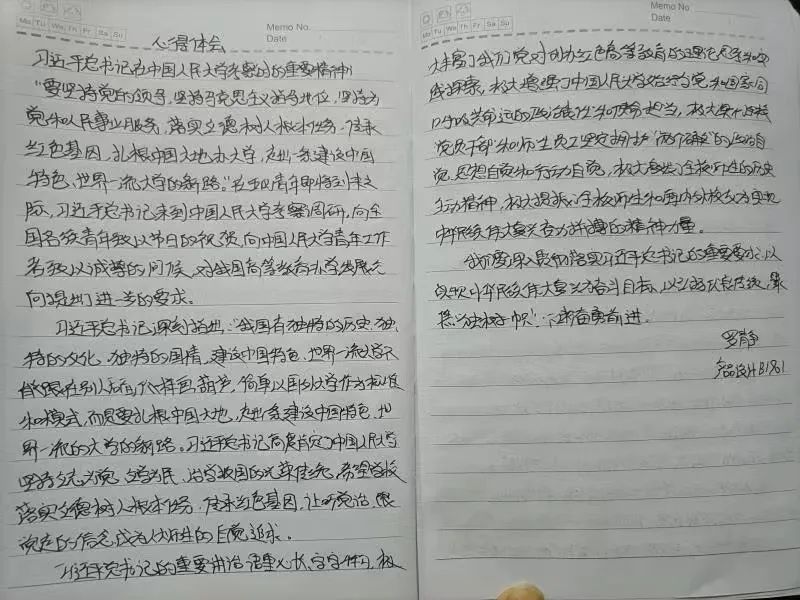 Memo No.
Mo Tu We Th Fr Sa Su
Date
心得体会
习近平总书记在中国人民大学考察时的重要精神
“要坚持党的领导，坚持马克思主义指导地位，坚持为
党和人民事业服务，落实立德树人根本任务，传承
红色基因，扎根中国大地办大学，走出一条建设中国
特色、世界一流大学的新路。”在五四青年节即将到来之
际，习近平总书记来到中国人民大学考察调研，向全
国各族青年致以节日的祝贺，向中国人民大学青年工作
者致以诚挚的问候，对我国高等教育办学发展方
向提出了进一步的要求。
习近平总书记深刻指出：“我国有独特的历史、独
特的文化、独特的国情，建设中国特色、世界一流大学不
能跟在别人后面依样画葫芦，简单以国外大学作为标准
和模式，而是要扎根中国大地，走出一条建设中国特色、世
界一流的大学的新路。习近平总书记高度肯定了中国人民大学
坚持立学为党、立学为民、治学报国的光荣传统，希望学校
落实立德树人根本任务，传承红色基因，让听党话、跟
党走的信念成为人大师生的自觉追求。
习近平总书记的重要讲话语重心长、字字千钧，极
Memo No.
Mo Tu We Th Fr Sa Su
Date
大丰富了我们党对创办红色高等教育的理论思考和实
践探索，极大增强了中国人民大学始终与党和国家同
呼吸共命运的政治责任和使命担当，极大坚定了学校
党员干部和师生员工坚定拥护“两个确立”的政治自
觉、思想自觉和行动自觉，极大激发了全校师生的历史
主动精神，极大提振了全校师生和海内外校友为实现
中华民族伟大复兴奋力拼搏的精神力量。
我们要深入贯彻落实习近平总书记的重要要求，以
实现中华民族伟大复兴为奋斗目标，以
“独树一帜”，奋勇前进.
罗静
B1961